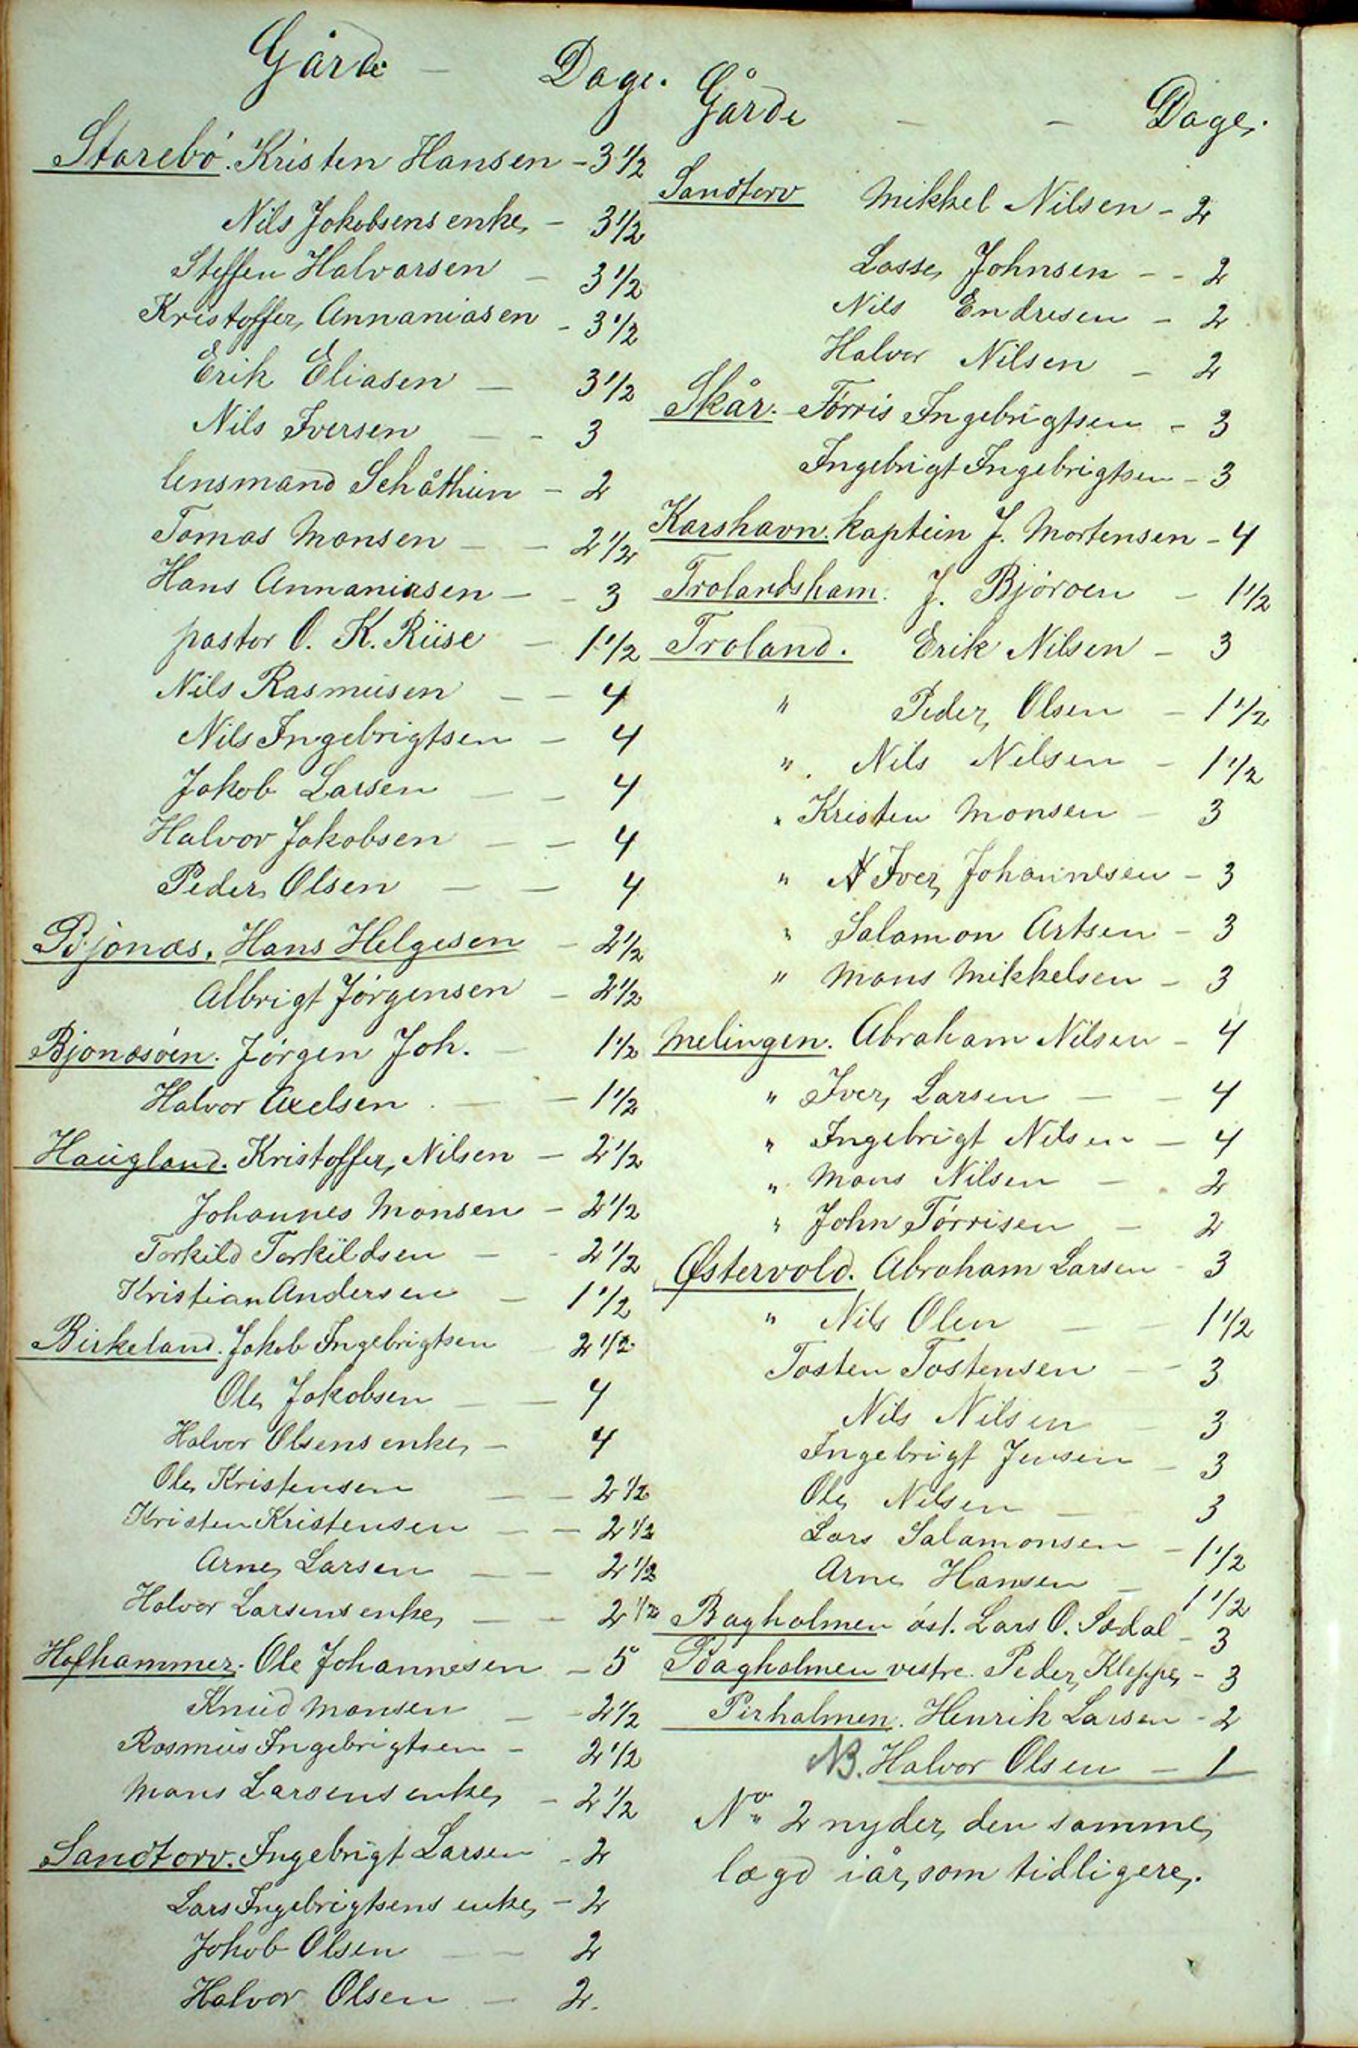 Gårde — Dage.
Storebø. Kristen Hansen - 3 1/2
Nils Jokobsens enke, - 3 1/2
Steffen Halvorsen - 3 1/2
Kristoffer, Annaniasen - 3 1/2
Erik Eliasen — 3 1/2
Nils Iversen — - 3
lensmand Schåthun - 2
Tomas Monsen — - 2 1/2
Hans Annaniasen — - 3
pastor O. K. Riise - 1 1/2
Nils Rasmusen — - 4
Nils Ingebrigtsen - 4
Jakob Larsen — - 4
Halvor Jakobsen — - 4
Peder, Olsen — - 4
Bjonæs. Hans Helgesen - 2 1/2
Albrigt Jørgensen - 2 1/2
Bjonæsøen. Jørgen Joh. - 1 1/2
Halvor Axelsen — - 1 1/2
Haugland. Kristoffer, Nilsen - 2 1/2
Johannes Monsen - 2 1/2
Torkild Torkildsen — - 2 1/2
Kristian Andersen — 1 1/2
Birkeland. Jakob Ingebrigtsen - 2 1/2
Ole, Jakobsen — - 4
Halvor Olsens enke, - 4
Ole, Kristensen — - 2 1/2
Kristen Kristensen — - 2 1/2
Arne, Larsen — - 2 1/2
Halvor Larsens enke, — - 2 1/2
Hofhammer. Ole Johannesen - 5
Knud Monsen — - 2 1/2
Rasmus Ingebrigtsen - 2 1/2
Mons Larsens enke, - 2 1/2
Sandtorv. Ingebrigt Larsen - 2
Lars Ingebrigtsens enke, - 2
Jakob Olsen — - 2
Halvor Olsen — 2.
Gårde — - Dage.
Sandtorv Mikkel Nilsen - 2
Lasse, Johnsen - - 2
Nils Endresen - 2
Halvor Nilsen - 2
Skår. Tørris Ingebrigtsen - 3
Ingebrigt Ingebrigtsen - 3
Karshavn. kaptein J. Mortensen - 4
Trolandsham. J. Bjøroen - 1 1/2
Troland. Erik Nilsen - 3
" Peder, Olsen - 1 1/2
" Nils Nilsen - 1 1/2
" Kristen Monsen - 3
" Iver, Johannesen - 3
" Salamon Artsen - 3
" Mons Mikkelsen - 3
Melingen. Abraham Nilsen - 4
" Iver, Larsen — - 4
" Ingebrigt Nilsen - 4
" Mons Nilsen - 2
" John Tørrisen - 2
Østervold. Abraham Larsen - 3
" Nils Olen — - 1 1/2
Tosten Tostensen — - 3
Nils Nilsen - 3
Ingebrigt Jensen - 3
Ole, Nilsen — 3
Lars Salamonsen - 1 1/2
Arne, Hansen - 1 1/2
Bagholmen øst. Lars O. Sædal - 3
Bagholmen vestre. Peder, Kleppe, - 3
Pirholmen. Henrik Larsen - 2
NB. Halvor Olsen - 1
No. 2 nyder, den samme,
lægd iår, som tidligere,.